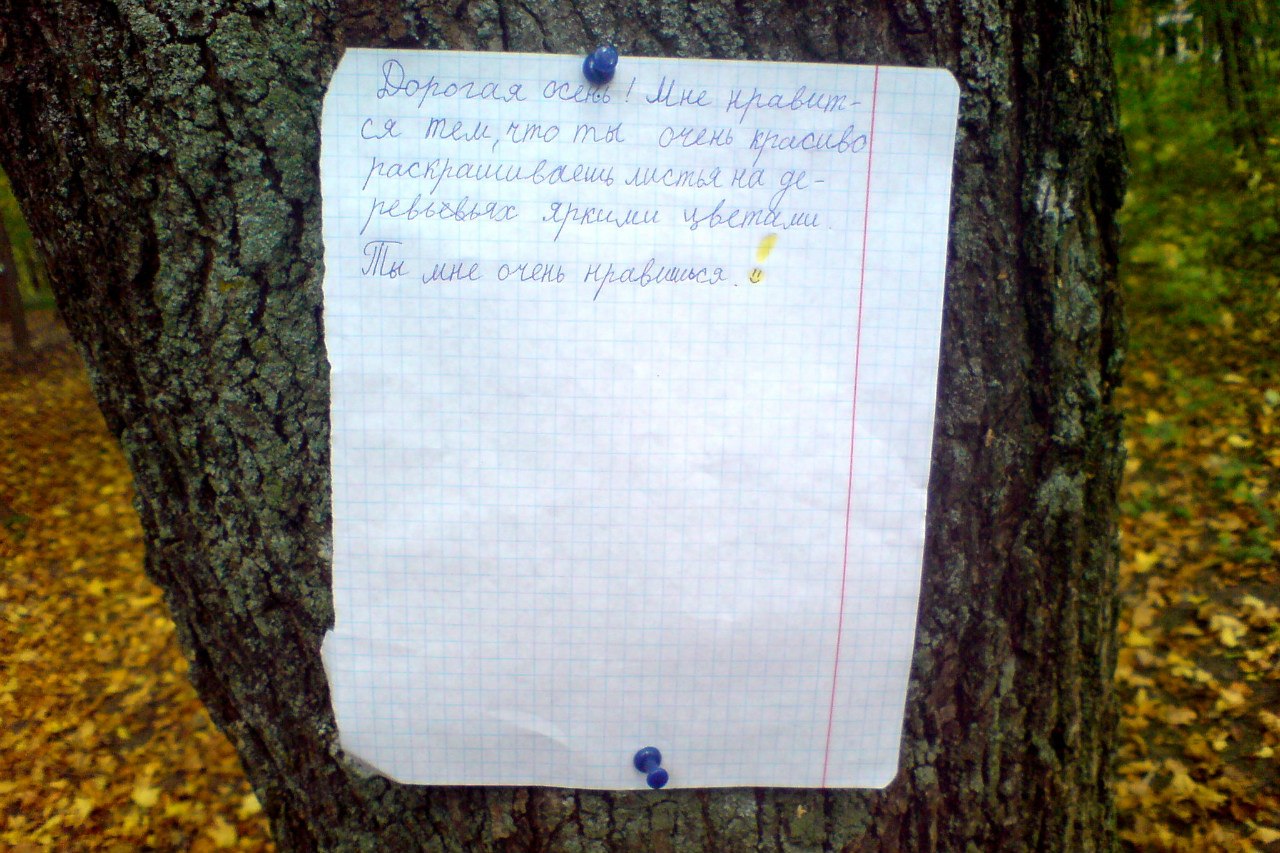 Дорогая осень! Мне нравит-
ся тем, что ты очень красиво
раскрашиваешь листья на де-
ревьевьях яркими цветами.
Ты мне очень нравишься.!